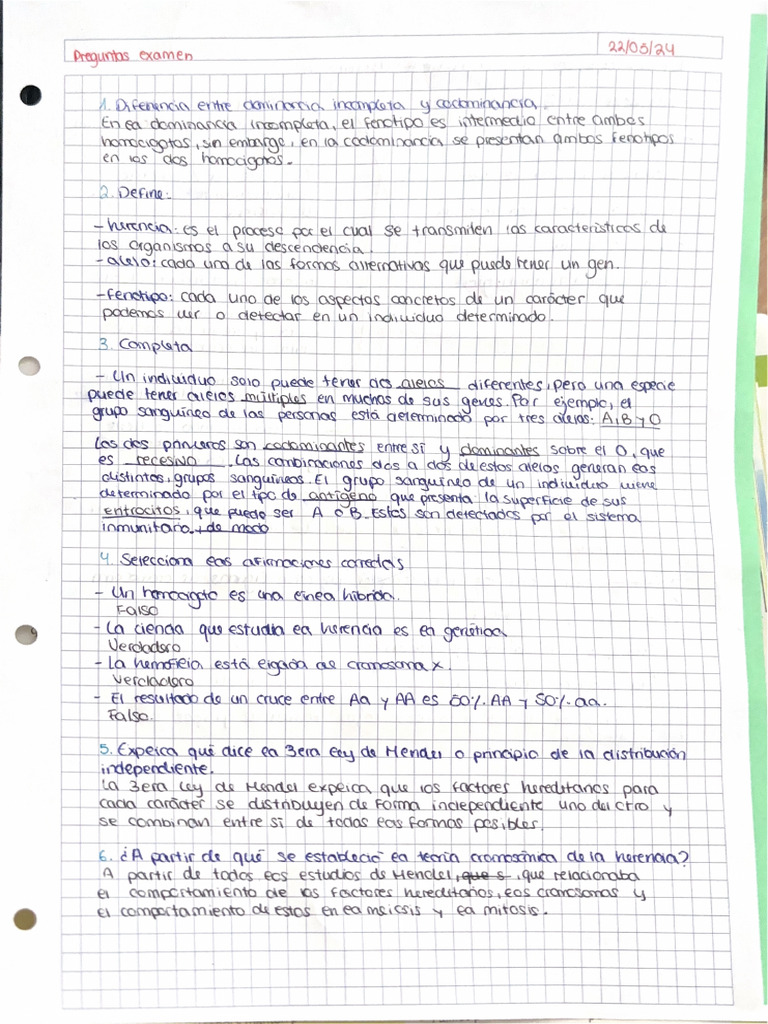 Preguntas examen
22/05/24
1. Diferencia entre dominancia incompleta y codominancia.
En ea dominancia incompleta, el fenotipo es intermedio entre ambos
homocigotos, sin embargo, en la codominancia se presentan ambos fenotipos
en los dos homocigotos.
2. Define:
- herencia: es el proceso por el cual se transmiten las características de
los organismos a su descendencia.
- alelo: cada una de las formas alternativas que puede tener un gen.
- fenotipo: cada uno de los aspectos concretos de un carácter que
podemos ver o detectar en un individuo determinado.
3. Completa
- Un individuo solo puede tener dos alelos diferentes, pero una especie
puede tener alelos múltiples en muchos de sus genes. Por ejemplo, el
grupo sanguíneo de las personas está determinado por tres alelos: A, B y O
Los dos primeros son codominantes entre sí y dominantes sobre el O, que
es recesivo. Las combinaciones dos a dos de estos alelos generan los
distintos grupos sanguíneos. El grupo sanguíneo de un individuo viene
determinado por el tipo de antígeno que presenta la superficie de sus
entrocitos, que puede ser A o B. Estos son detectados por el sistema
inmunitario + de modo
4. Selecciona las afirmaciones correctas
- Un homocigoto es una línea híbrida.
Falso
- La ciencia que estudia la herencia es la genética.
Verdadero
- La hemofilia está ligada al cromosoma x.
Verdadero
- El resultado de un cruce entre Aa y AA es 50%. AA y 50%. aa.
Falso.
5. Explica qué dice la 3era Ley de Mendel o principio de la distribución
independiente.
La 3era Ley de Mendel explica que los factores hereditarios para
cada carácter se distribuyen de forma independiente uno del otro y
se combinan entre sí de todas las formas posibles.
6. ¿A partir de qué se estableció la teoría cromosómica de la herencia?
A partir de todos los estudios de Mendel, que s, que relacionaba
el comportamiento de los factores hereditarios, los cromosomas y
el comportamiento de estos en la meiosis y la mitosis.